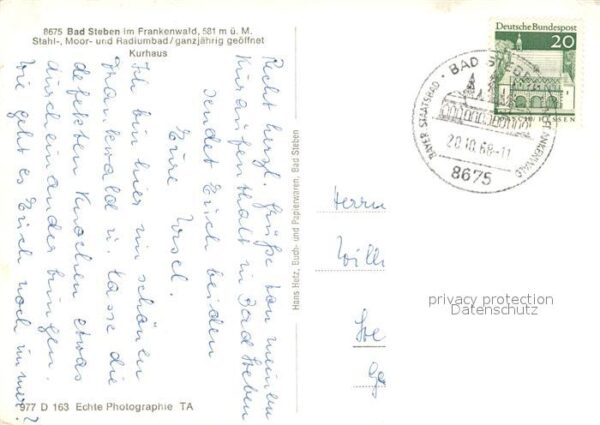 8675 Bad Steben im Frankenwald, 581 m ü. M.
Stahl-, Moor- und Radiumbad/ganzjährig geöffnet
Kurhaus
Recht herzl. Grüße von meinem
Kuraufenthalt in Bad Steben
sendet Euch beiden
Eure Ursel.
Ich bin hier im schönen
Frankwald u. lasse die
defekten Knochen etwas
durcheinander bringen.
Wie geht es Euch noch immer?
977 D 163 Echte Photographie TA
Hans Hetz, Buch- und Papierwaren, Bad Steben
Deutsche Bundespost
20
BAYER. STAATSBAD · BAD STEBEN FRANKENWALD
20.10.68-11
8675
Herrn
Willi
privacy protection
Datenschutz